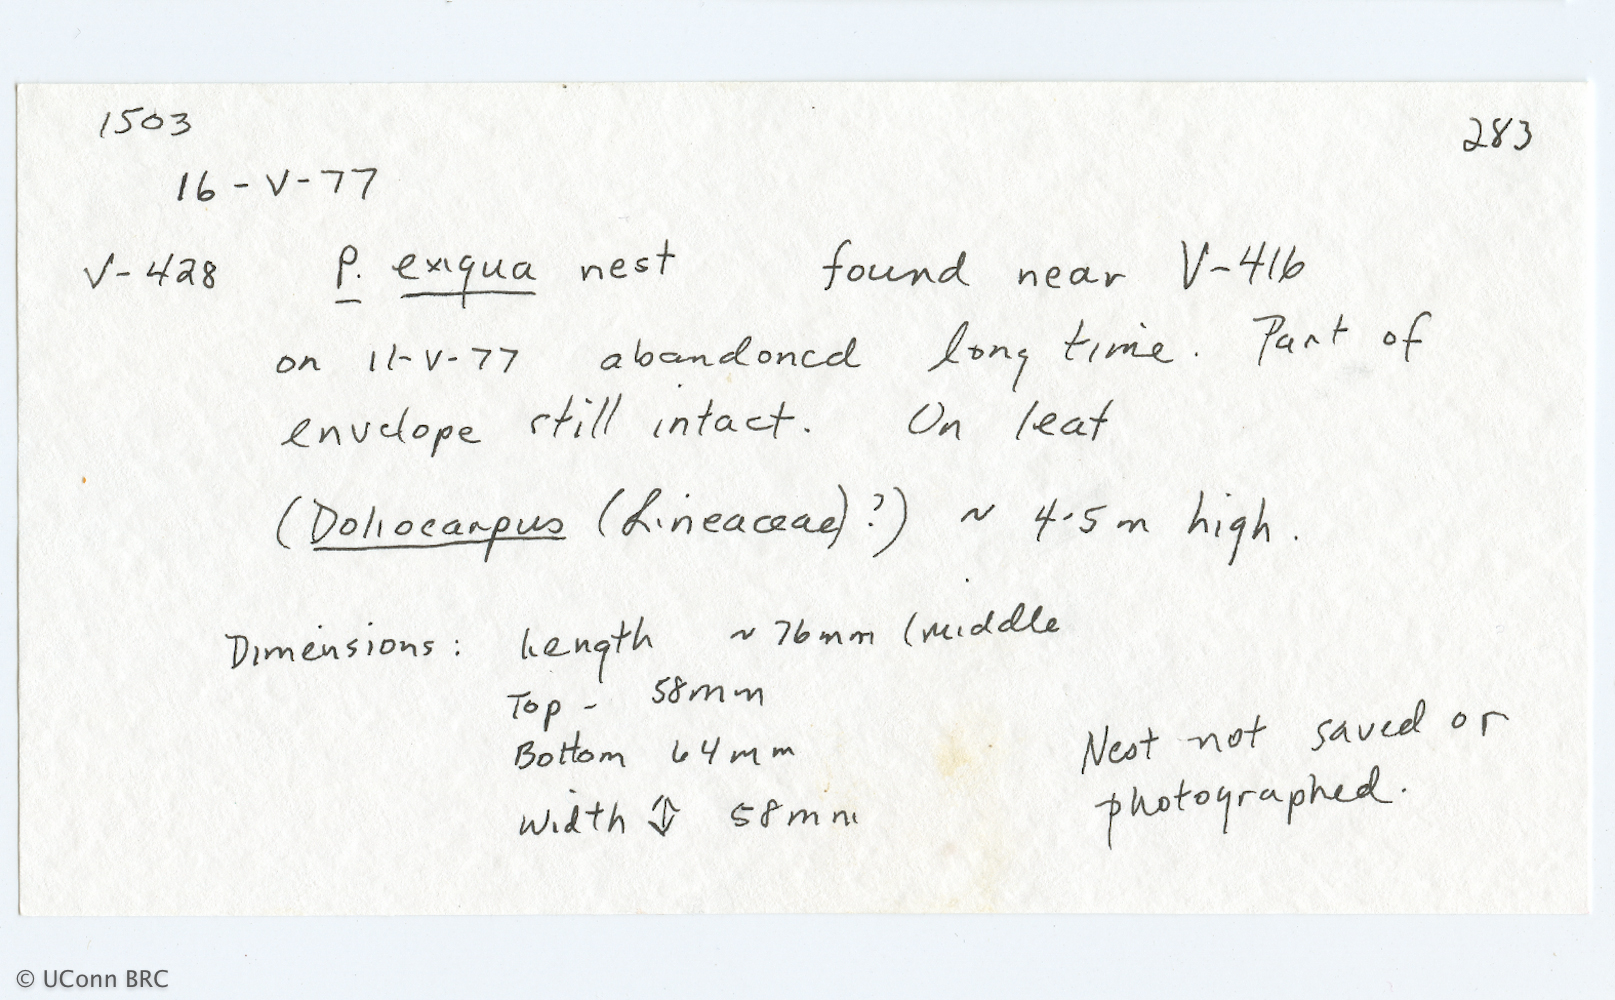 1503
283
16-V-77
V-428 P. exiqua nest found near V-416
on 11-V-77 abandoned long time. Part of
envelope still intact. On leaf
(Doliocarpus (Lineaceae)?) ~ 4.5m high.
Dimensions: Length ~ 76mm (middle
Top - 58mm
Bottom 64mm
Width ⇕ 58mm
Nest not saved or
photographed.
© UConn BRC